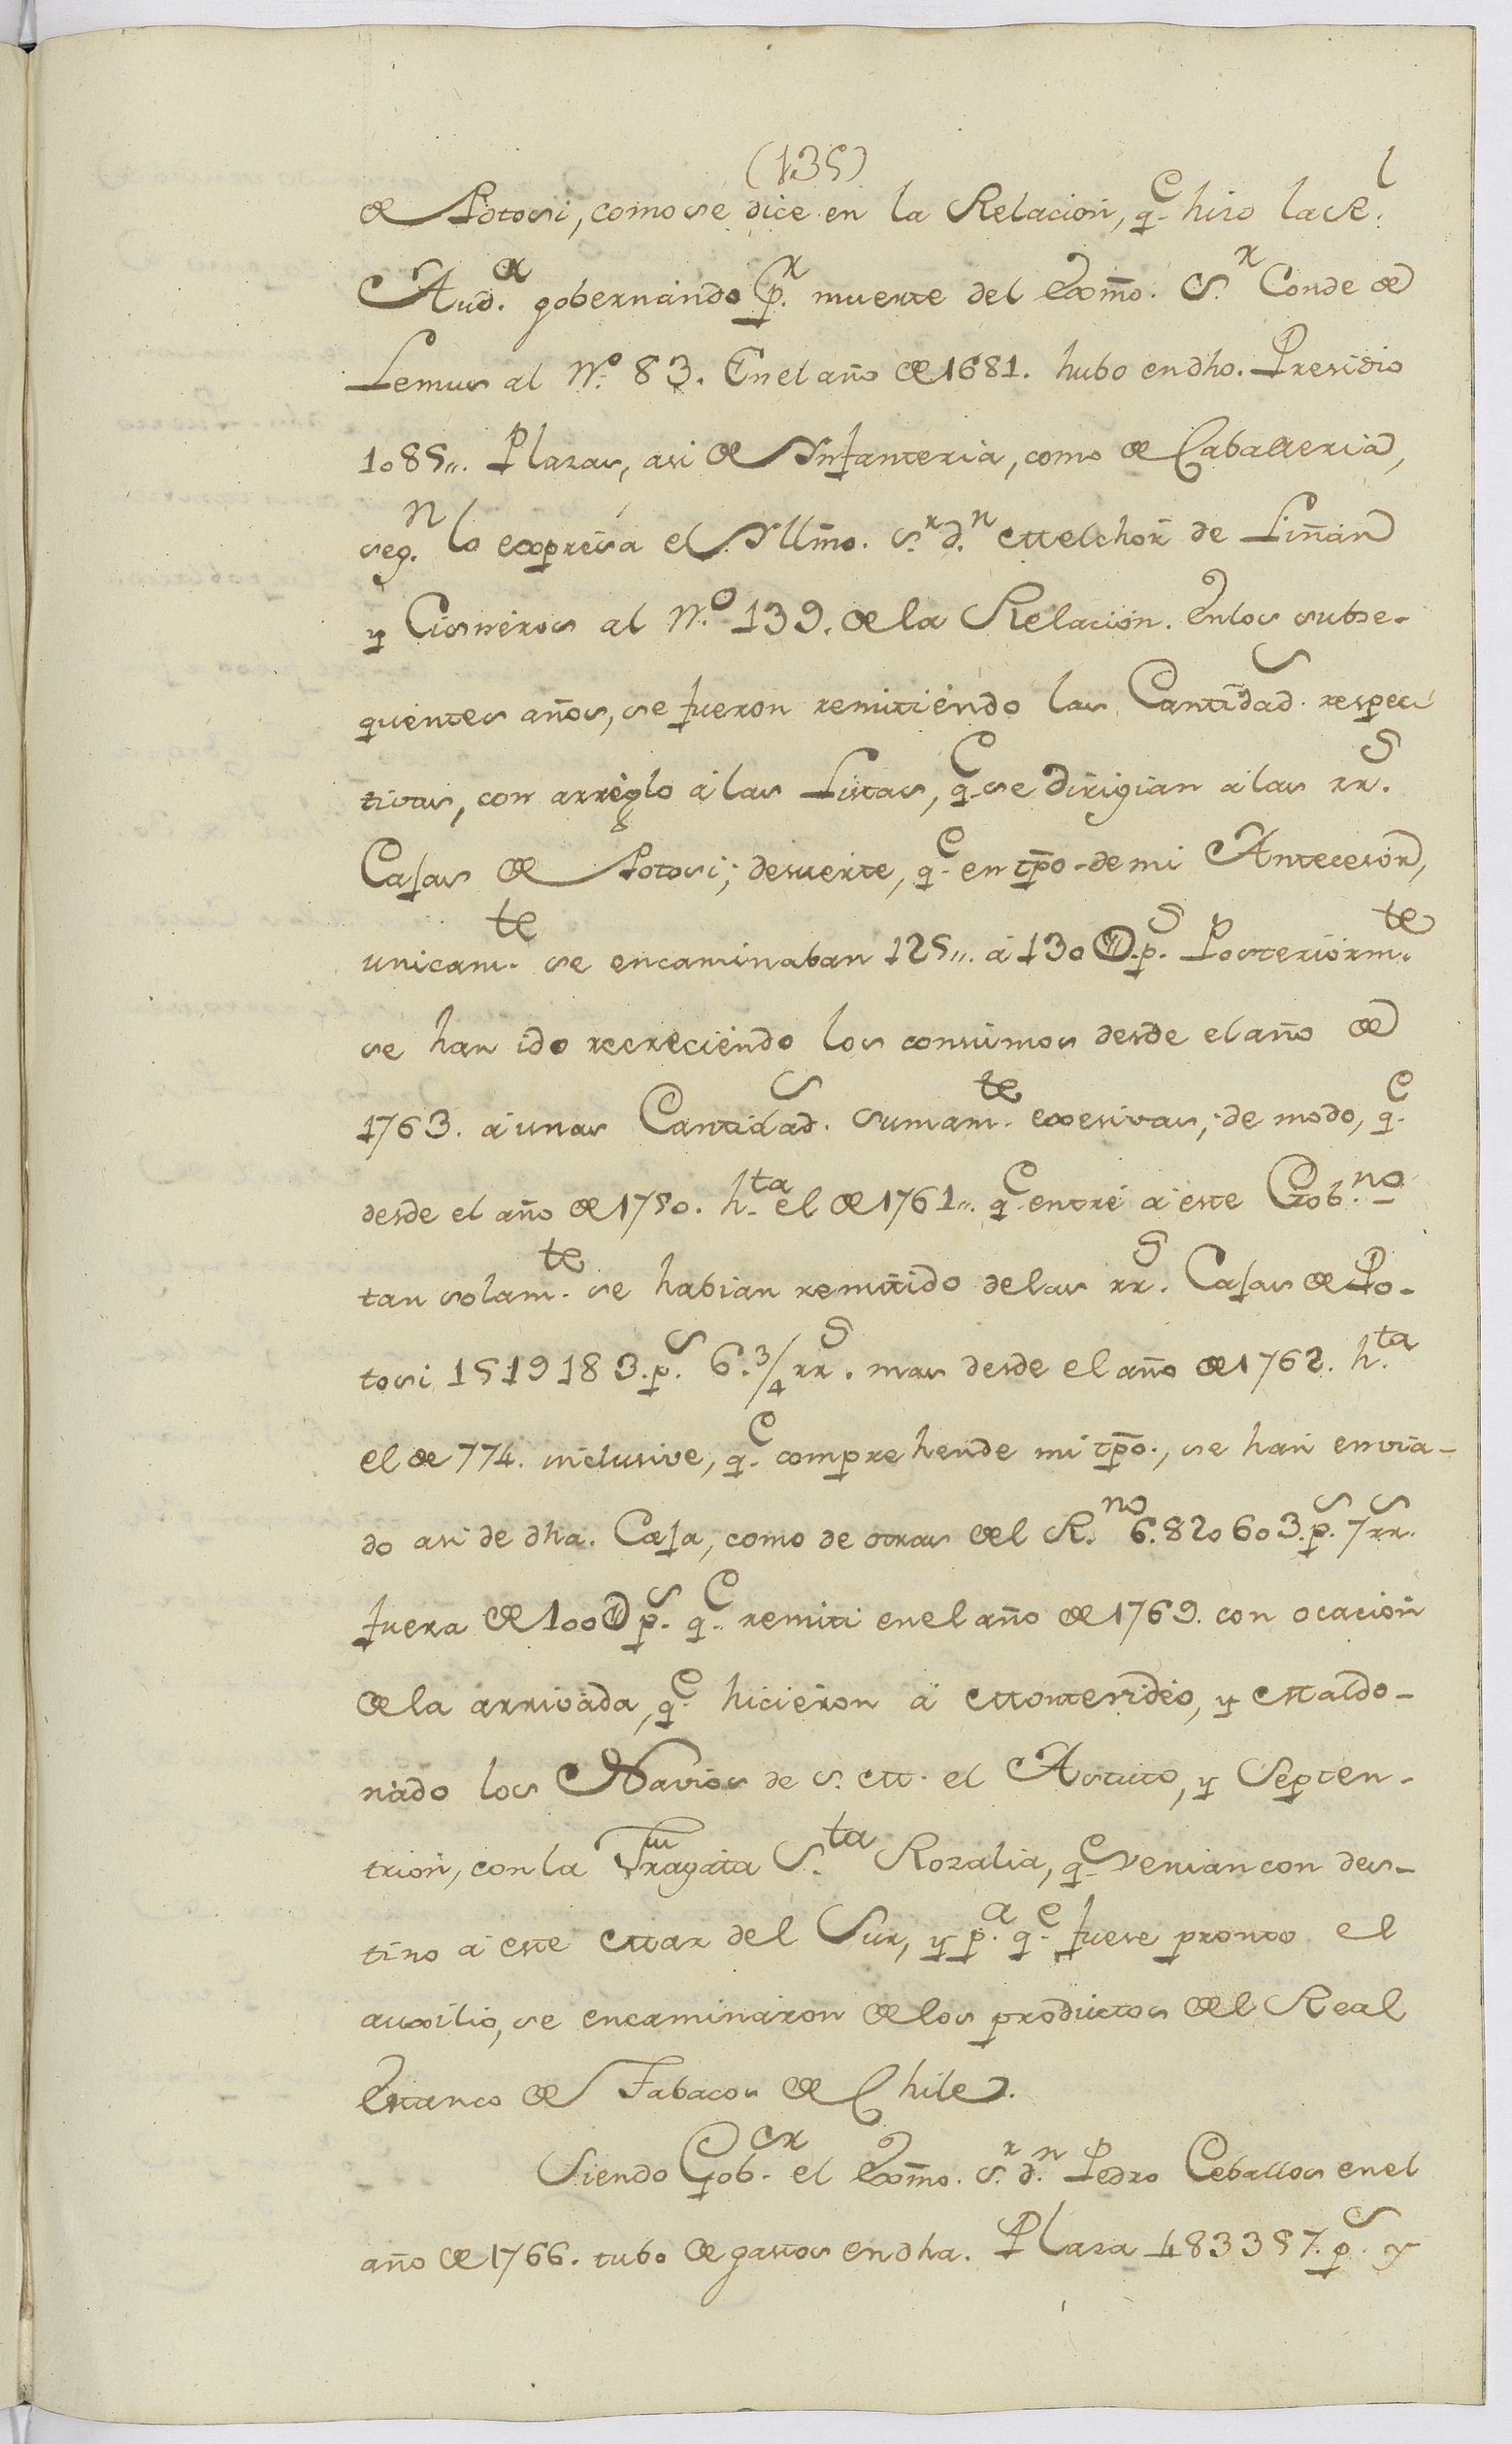 (135)
de Potosi, como se dice en la Relacion, q.e hizo la Re.l
Aud.a gobernando p.r muerte del Exmo. S.r Conde de
Lemus al N.o 83. En el año de 1681. hubo en dho. Presidio
1085,,. Plazas, asi de Ynfanteria, como de Caballeria,
seg.n lo expresa el Yllmo. S.r d.n Melchor de Liñan
y Cisneros al N.o 139. de la Relacion. En los subse-
quentes años, se fueron remitiendo las Cantidad.s respec-
tivas, con arreglo á las Listas, q.e se dirigian a las rr.s
Cajas de Potosi; desuerte, q.e en tpo de mi Antecesor,
unicam.te se encaminaban 125,,. á 130 U p.s Posteriorm.te
se han ido recreciendo los consumos desde el año de
1763. á unas Cantidad.s sumam.te exesivas; de modo, q.e
desde el año de 1750. h.ta el de 1761,,. q.e entré á este Gob.no
tan solam.te se habian remitido de las rr.s Cajas de Po-
tosi 1519183. p.s 6. 3/4 rr.s mas desde el año de 1762. h.ta
el de 774. inclusive, q.e comprehende mi tpo., se han envia-
do asi de dha. Caja, como de otras del R.no 6.820603. p.s 7 rr.s
fuera de 100 U p.s q.e remiti en el año de 1769. con ocacion
de la arrivada, q.e hicieron á Montevideo, y Maldo-
nado los Navios de S. M. el Astuto, y Septen-
trion, con la Fragata S.ta Rozalia, q.e venian con des-
tino á este Mar del Sur, y p.a q.e fuese pronto el
auxilio, se encaminaron de los productos del Real
Estanco de Tabacos de Chile.
Siendo Gob.or el Exmo. S.r d.n Pedro Ceballos en el
año de 1766. tubo de gastos en dha. Plaza 483357. p.s y